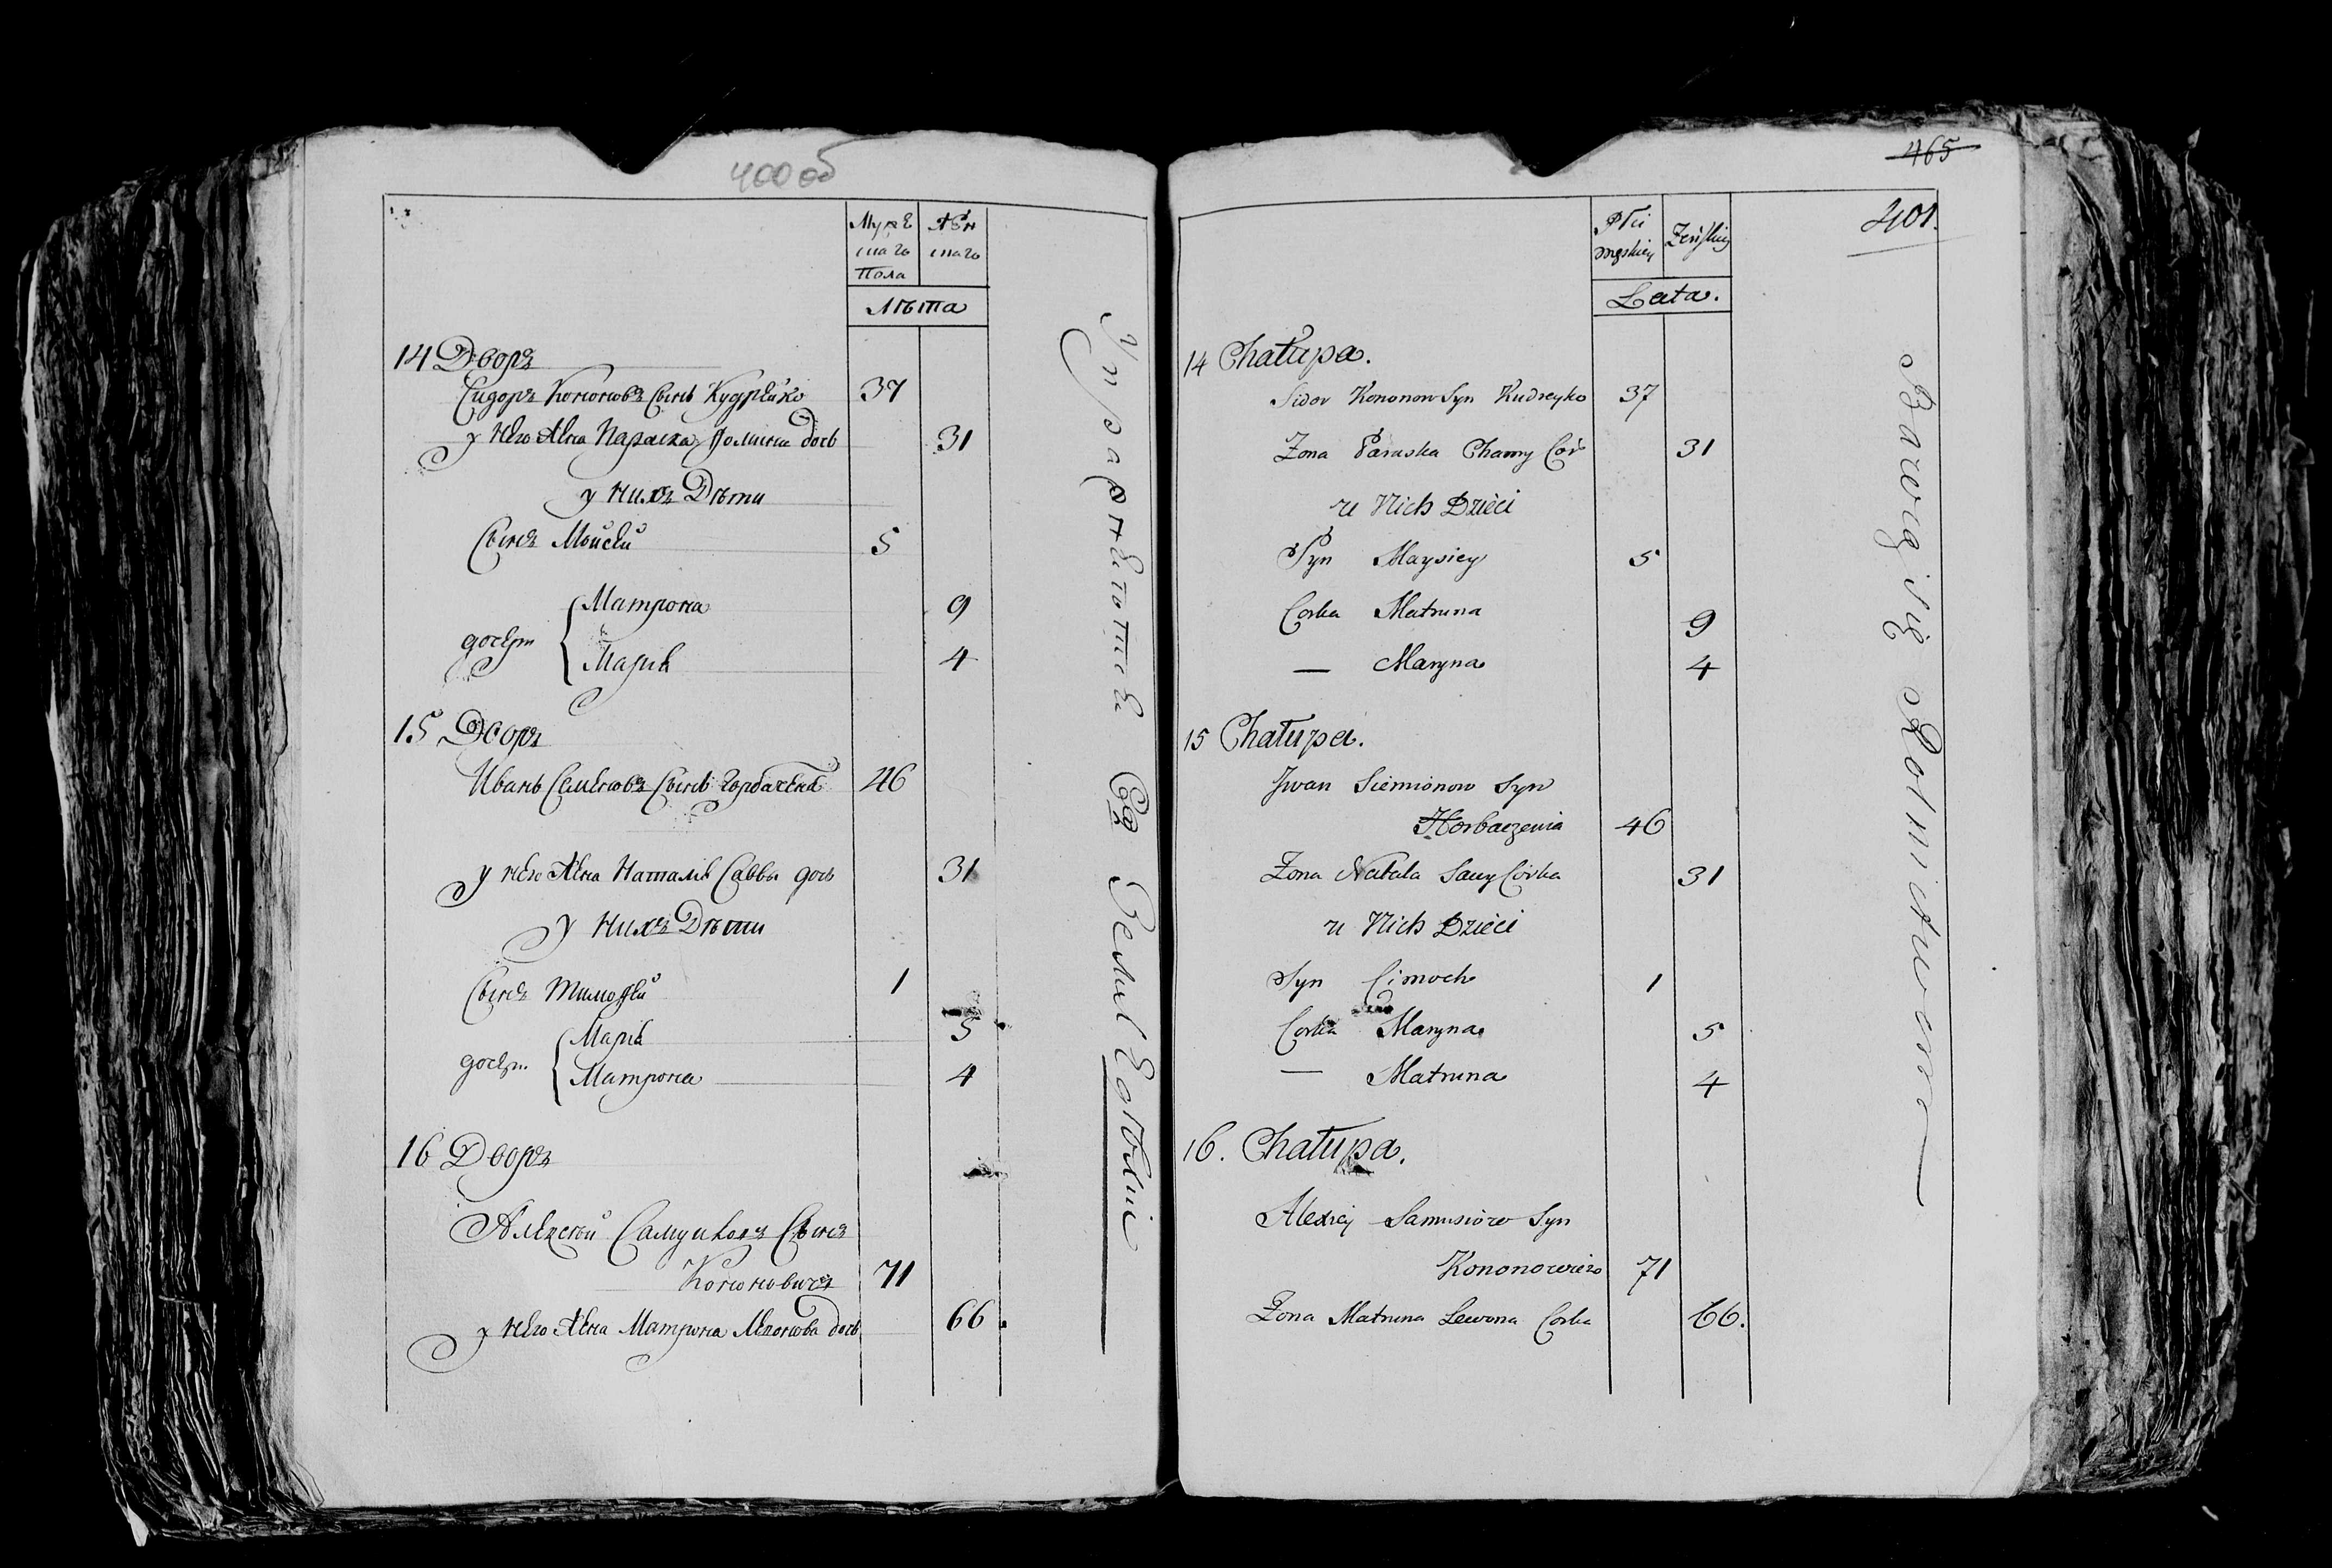 400 об
Мужe
скагь
Пола
Жен
скагь
Лѣта
14 Дворъ
Сидоръ Кононовъ Сынъ Кудрейко 37
у него жена Параска Фомина дочь 31
у нихъ Дѣти
Сынъ Мойсей 5
дочери Матрона 9
Марія 4
15 Дворъ
Иванъ Семеновъ Сынъ Горбаченя 46
у него жена Наталія Саввы дочь 31
у нихъ Дѣти
Сынъ Тимофей 1
дочери Марія 5
Матрона 4
16 Дворъ
Алексей Самуиловъ Сынъ
Кононовичъ 71
у него жена Матрона Леонова дочь 66.
Упражняются въ Земледѣліи
465
401.
Płci
męskiey
Zeńskiey
Lata.
14 Chałupa.
Sidor Kononow Syn Kudreyko 37
Zona Paraska Chamy Cór 31
u Nich Dzieci
Syn Maysiey 5
Corka Matruna 9
— Maryna 4
15 Chałupa.
Jwan Siemionow Syn
Horbaczenia 46
Zona Natala Sawy Córka 31
u Nich Dzieci
Syn Cimoch 1
Corka Maryna 5
— Matruna 4
16. Chałupa.
Alexiej Samusiow Syn
Kononowicz 71
Zona Matruna Lewona Corka 66.
Bawią się Rolnictwem